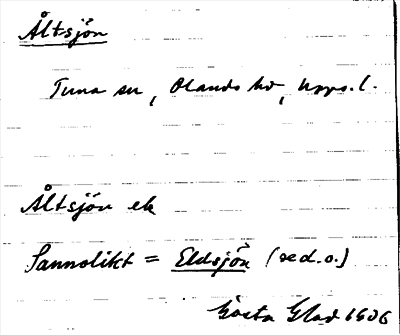 Åltsjön
Tuna sn, Olands hd, Upps. l.
Åltsjön ek
Sannolikt = Eldsjön (sed. o.)
Gösta Glad 1606